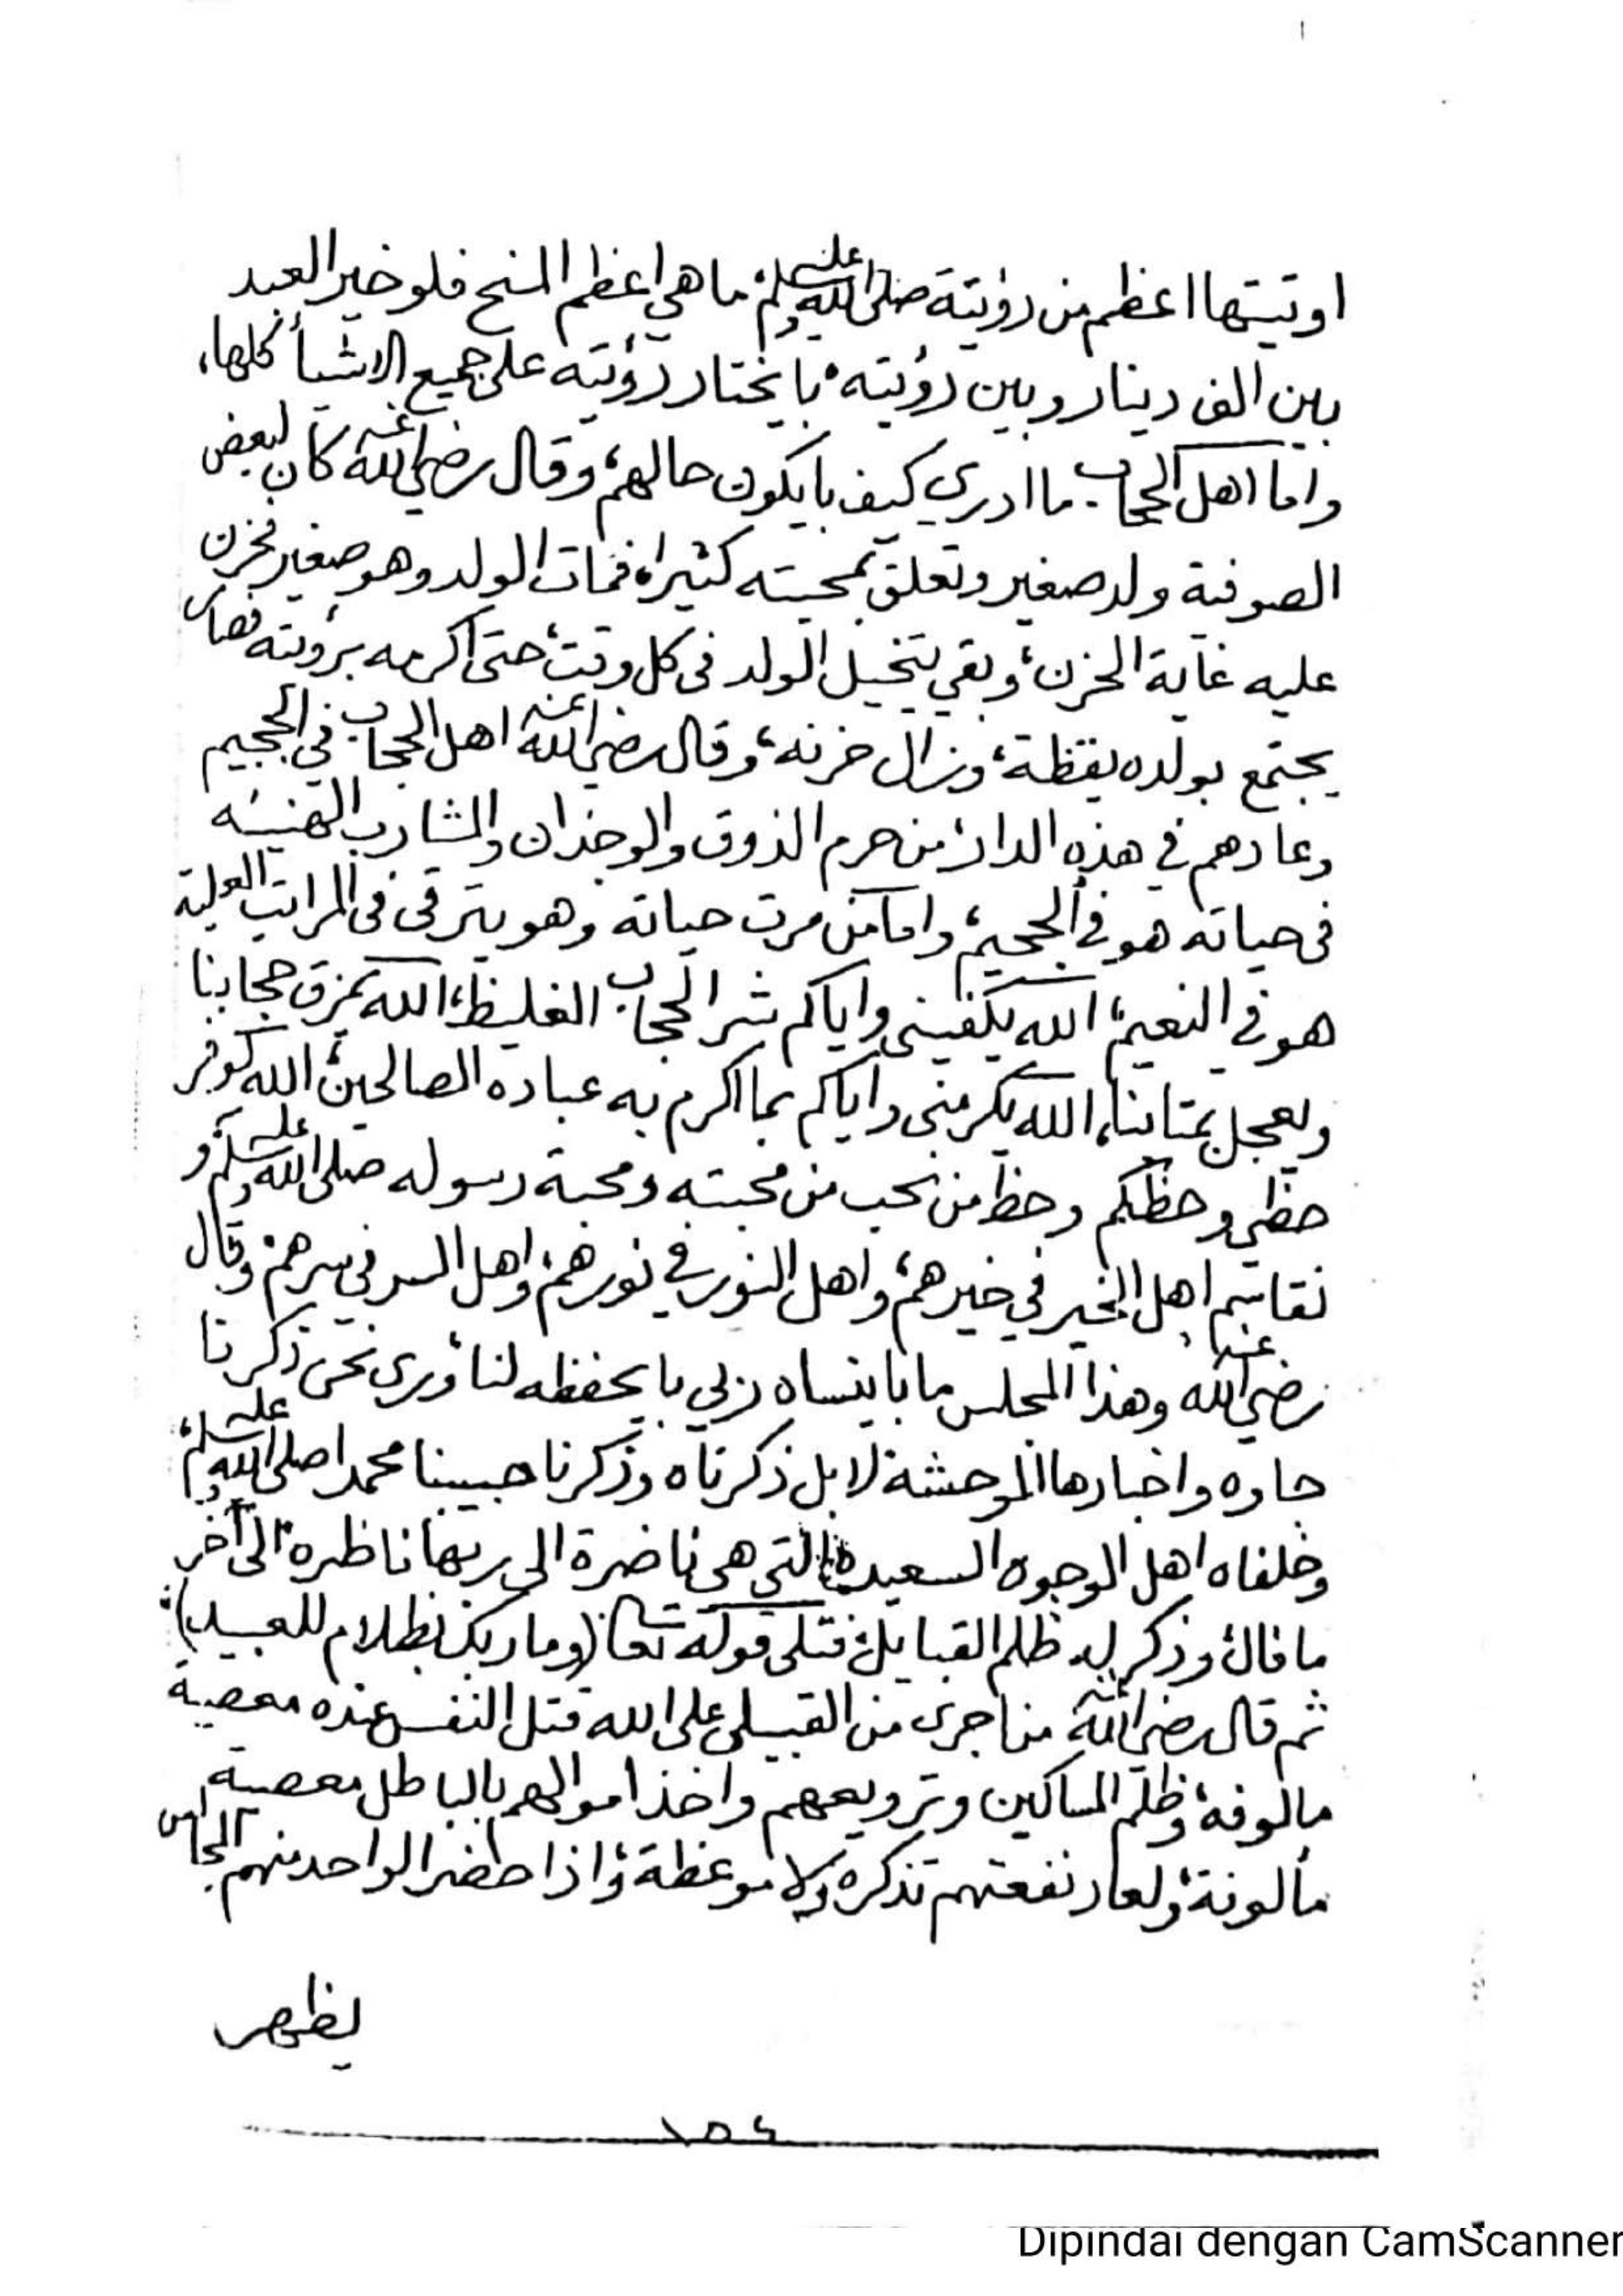 اوتيتها اعظم من رؤيته صلى الله عليه وسلم ما هي اعظم المنح فلو خير العبد
بين الف دينار وبين رؤيته با يختار رؤيته على جميع الاشيأ كلها،
واما اهل الحجاب ما ادري كيف با يكون حالهم، وقال رضي الله عنه كان لبعض
الصوفية ولد صغير وتعلق بمحبته كثيرا، فمات الولد وهو صغير فحزن
عليه غاية الحزن، وبقي يتخيل الولد في كل وقت، حتى اكرمه برؤيته فصار
يجتمع بولده يقظة، وزال حزنه، وقال رضي الله عنه اهل الحجاب في الجحيم
وعادهم في هذه الدار من حرم الذوق والوجدان والمشارب الهنيئه
في حياته هو في الجحيم، واما من مرت حياته وهو يترقى في المراتب العلية
هو في النعيم، الله يكفيني واياكم شر الحجاب الغليظ، الله يمزق حجابنا
ويعجل بمتابنا، الله يكرمني واياكم بما اكرم به عباده الصالحين، الله يوفر
حظي وحظكم وحظ من نحب من محبته ومحبة رسوله صلى الله عليه وسلم و
نقاسم اهل الخير في خيرهم، واهل النور في نورهم، واهل السر في سرهم، وقال
رضي الله عنه وهذا المجلس ما با ننساه ربي با يحفظه لنا، وري نحن ذكرنا
جاوه واخبارها الموحشة لا بل ذكرناه وذكرنا حبيبنا محمدا صلى الله عليه وسلم،
وخلفاه اهل الوجوه السعيدة التي هي ناضرة الى ربها ناظره، الى آخر
ما قال، وذكر له ظلم القبايل، فتلى قوله تعالى (وما ربك بظلام للعبيد)
ثم قال رضي الله عنه من اجرى من القبيلي على الله قتل النفس عنده معصية
مالوفة، وظلم المساكين وترويعهم واخذ اموالهم بالباطل معصية
مألوفة، ولعاد نفعتهم تذكره ولا موعظة، واذا حضر الواحد منهم المجالس
يظهر
١٥٤
Dipindai dengan CamScanner